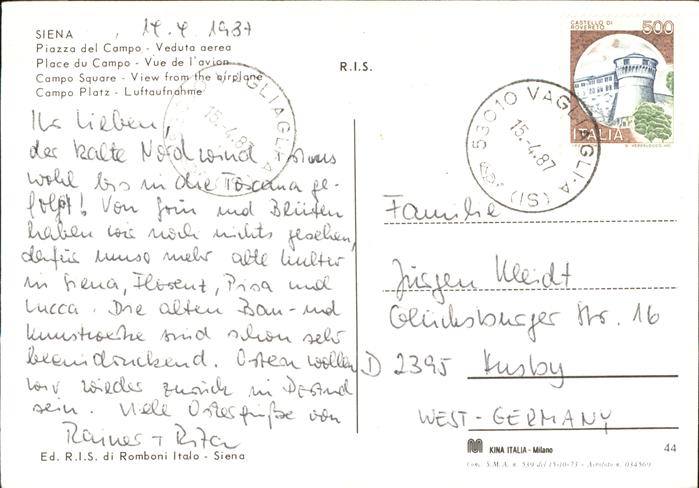 SIENA , 14.4.1987
Piazza del Campo - Veduta aerea
Place du Campo - Vue de l'avion
Campo Square - View from the airplane
Campo Platz - Luftaufnahme
R.I.S.
Ihr Lieben,
der kalte Nordwind ist uns
wohl bis in die Toscana ge-
folgt! Von Grün und Blüten
haben wir noch nichts gesehen,
dafür umso mehr alte Kultur
in Siena, Florenz, Pisa und
Lucca. Die alten Bau- und
Kunstwerke sind schon sehr
beeindruckend. Ostern wollen
wir wieder zurück in
sein. Viele Ostergrüße von
Rainer + Rita
Ed. R.I.S. di Romboni Italo - Siena
CASTELLO DI
ROVERETO
500
ITALIA
53010 VAGLIAGLIA (SI)
15.-4.87
VAGLIAGLIA
15.-4.87
Familie
Jürgen
Glücksburger Str. 16
D 2395 Husby
WEST-GERMANY
KINA ITALIA - Milano
44
Conc. S.M.A. n. 539 del 15-10-73 - Aerofoto n. 034569